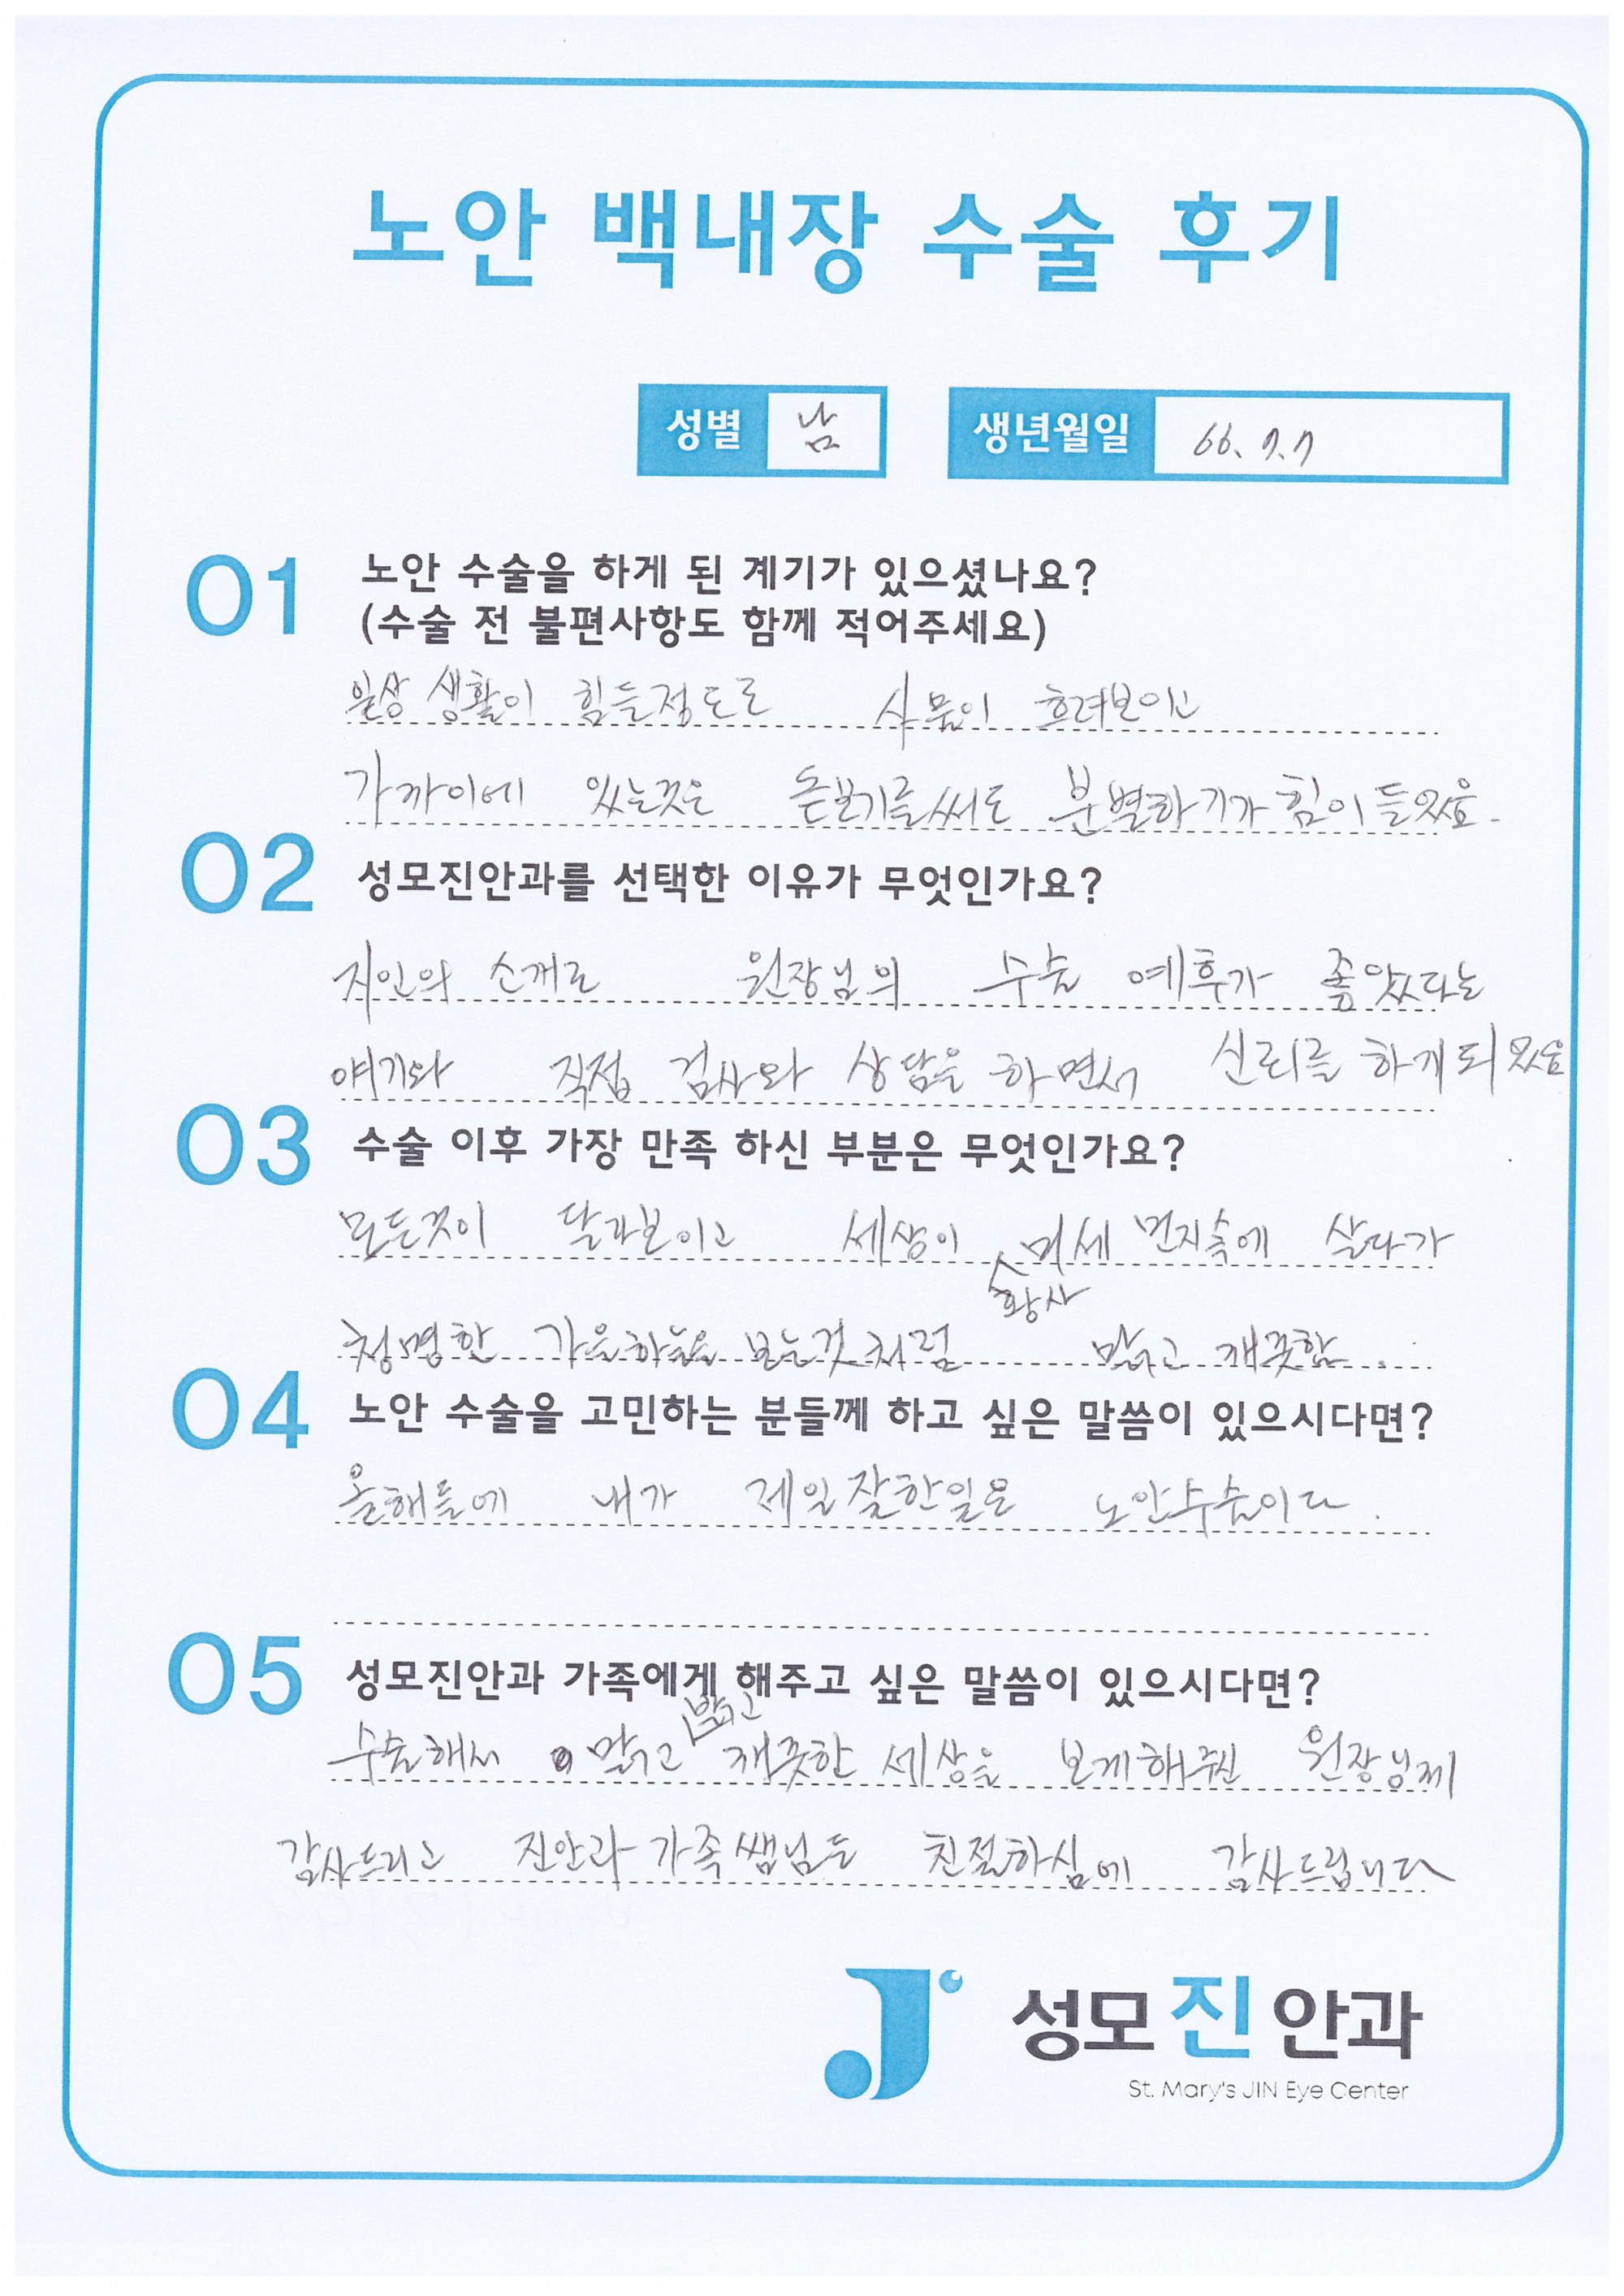 노안 백내장 수술 후기
성별 남 생년월일 66. 7. 7
01 노안 수술을 하게 된 계기가 있으셨나요?
(수술 전 불편사항도 함께 적어주세요)
일상 생활이 힘들정도로 사물이 흐려보이고
가까이에 있는것은 돋보기를써도 분별하기가 힘이 들었음.
02 성모진안과를 선택한 이유가 무엇인가요?
지인의 소개로 원장님의 수술 예후가 좋았다는
얘기와 직접 검사와 상담을 하면서 신뢰를 하게되었음
03 수술 이후 가장 만족 하신 부분은 무엇인가요?
모든것이 달라보이고 세상이 미세 먼지속에 살다가
황사
청명한 가을하늘을 보는것처럼 맑고 깨끗함..
04 노안 수술을 고민하는 분들께 하고 싶은 말씀이 있으시다면?
올해들에 내가 제일잘한일은 노안수술이다.
05 성모진안과 가족에게 해주고 싶은 말씀이 있으시다면?
밝고
수술해서 맑고 깨끗한 세상을 보게해준 원장님께
감사드리고 진안과 가족쌤님들 친절하심에 감사드립니다
성모진안과
St. Mary's JIN Eye Center